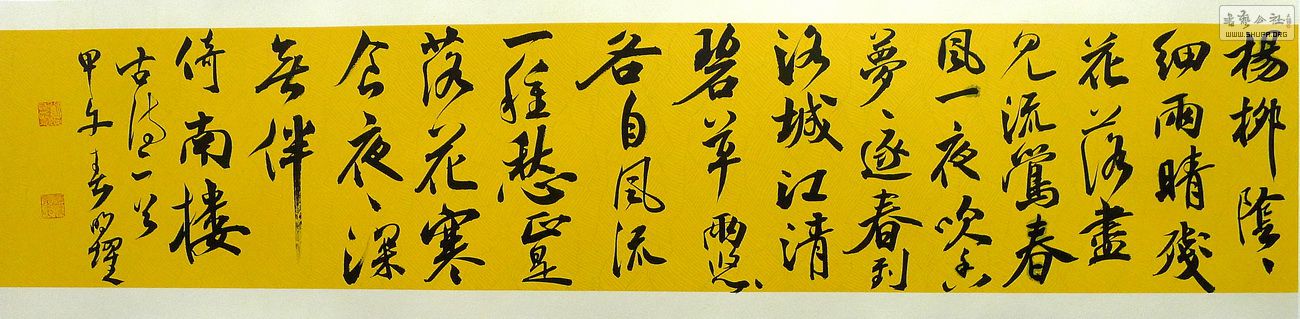 楊柳陰々
細雨晴殘
花落盡
見流鶯春
風一夜吹香
夢々逐春到
洛城江清
碧草兩悠々
各自風流
一種愁正是
落花寒
食夜々深
無伴
倚南樓
古詩一首
甲午春 耀
書藝公社
WWW.SHUFA.ORG